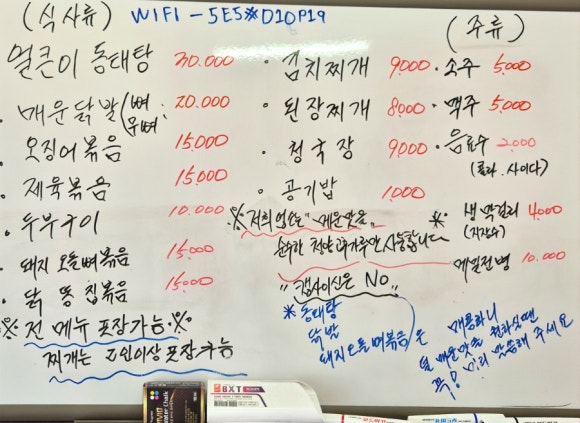 (식사류)
WIFI - 5E5※D10P19
얼큰이 동태탕 30.000
· 매운닭발 (뼈, 무뼈) 20.000
· 오징어볶음 15,000
· 제육볶음 15,000
· 두부구이 10.000
· 돼지오돌뼈볶음 15,000
· 닭똥집볶음 15,000
※ 전 메뉴 포장가능 ※
찌개는 2인이상 포장가능
· 김치찌개 9,000
· 된장찌개 8,000
· 청국장 9,000
· 공기밥 1,000
(주류)
· 소주 5,000
· 맥주 5,000
· 음료수 2,000
(콜라. 사이다)
※ 생막걸리 4,000
(지장수)
메밀전병 10.000
※ 저희업소는 "매운맛은"
순수한 청양고추가루만 사용합니다
"캡사이신은 NO"
* 동태탕
닭발
돼지오돌뼈볶음은
매콤하니
덜 매운맛을 원하실땐
꼭! 미리 말씀해 주세요
BXT